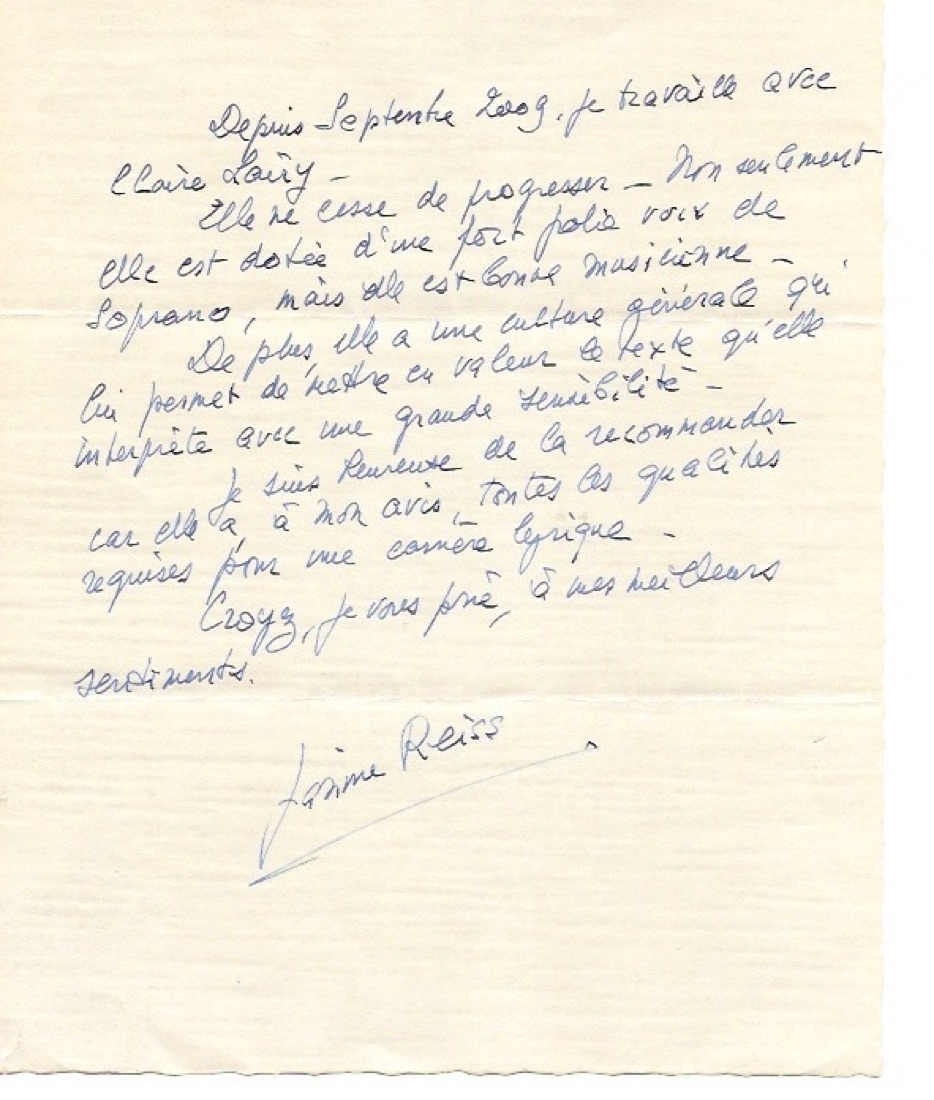 Depuis Septembre 2009, je travaille avec
Claire Loiry –
Elle ne cesse de progresser – Non seulement
elle est dotée d'une fort jolie voix de
Soprano, mais elle est bonne musicienne –
De plus, elle a une culture générale qui
lui permet de mettre en valeur le texte qu'elle
interprète avec une grande sensibilité –
Je suis heureuse de la recommander
car elle a, à mon avis, toutes les qualités
requises pour une carrière lyrique –
Croyez, je vous prie, à mes meilleurs
sentiments.
Janine Reiss